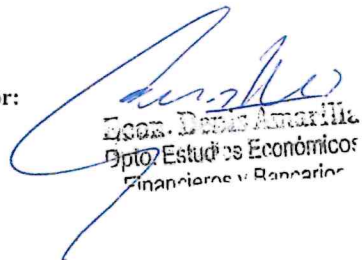 or:
Econ. Denis Amarilla
Dpto. Estudios Económicos
Financieros y Bancarios